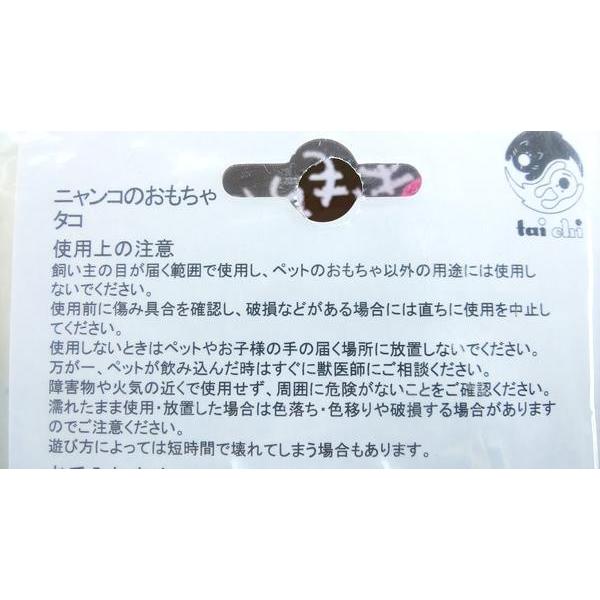 ニャンコのおもちゃ
タコ
tai chi
使用上の注意
飼い主の目が届く範囲で使用し、ペットのおもちゃ以外の用途には使用し
ないでください。
使用前に傷み具合を確認し、破損などがある場合には直ちに使用を中止し
てください。
使用しないときはペットやお子様の手の届く場所に放置しないでください。
万が一、ペットが飲み込んだ時はすぐに獣医師にご相談ください。
障害物や火気の近くで使用せず、周囲に危険がないことをご確認ください。
濡れたまま使用・放置した場合は色落ち・色移りや破損する場合があります
のでご注意ください。
遊び方によっては短時間で壊れてしまう場合もあります。